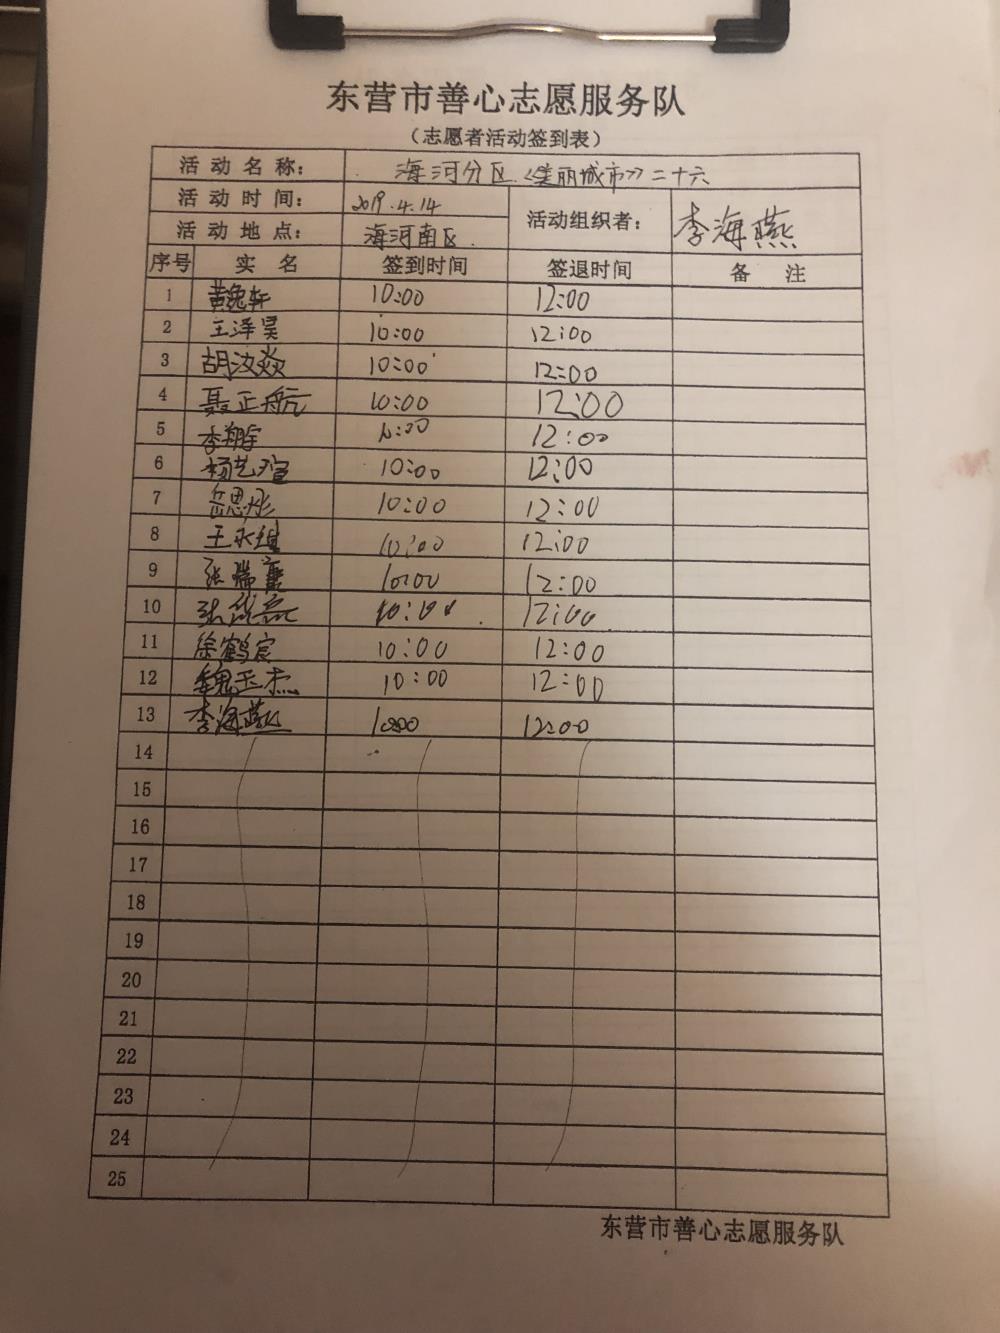 东营市善心志愿服务队
（志愿者活动签到表）
活动名称： 海河分区《美丽城市》二十六
活动时间： 2019.4.14 活动组织者： 李海燕
活动地点： 海河南区
序号 实名 签到时间 签退时间 备注
1 黄逸轩 10:00 12:00
2 王泽昊 10:00 12:00
3 胡汝焱 10:00 12:00
4 聂正航 10:00 12:00
5 李翔宇 10:00 12:00
6 杨艺瑄 10:00 12:00
7 岳思彤 10:00 12:00
8 王永 10:00 12:00
9 张瑞 10:00 12:00
10 张 10:00 12:00
11 徐鹤宸 10:00 12:00
12 魏玉杰 10:00 12:00
13 李海燕 10:00 12:00
14
15
16
17
18
19
20
21
22
23
24
25
东营市善心志愿服务队